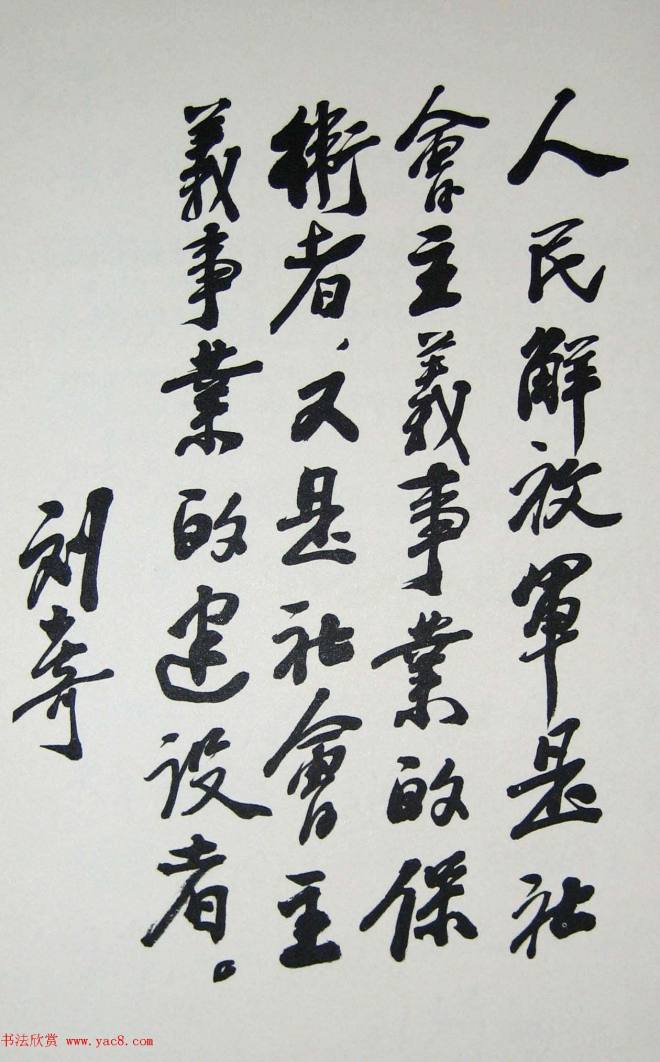 人民解放軍是社
會主義事業的保
衛者、又是社會主
義事業的建设者。
刘少奇
书法欣赏 www.yac8.com